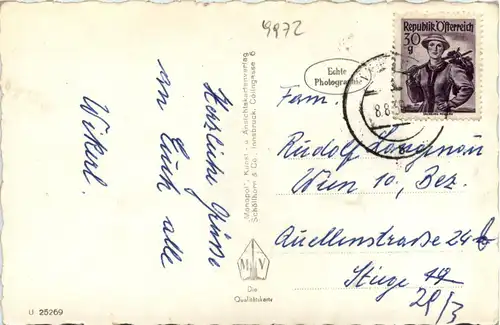 9972
Republik Österreich
30
g
8.8.5
Echte
Photographie
Herzliche Grüsse
an Euch alle
Wickerl.
"Monopol", Kunst- u. Ansichtskartenverlag
Schöllhorn & Co., Innsbruck, Colingasse 6
M V
Die
Qualitätskarte
Fam.
Rudolf
Wien 10, Bez.
Quellenstraße 24
Stiege
29/3
U 25269